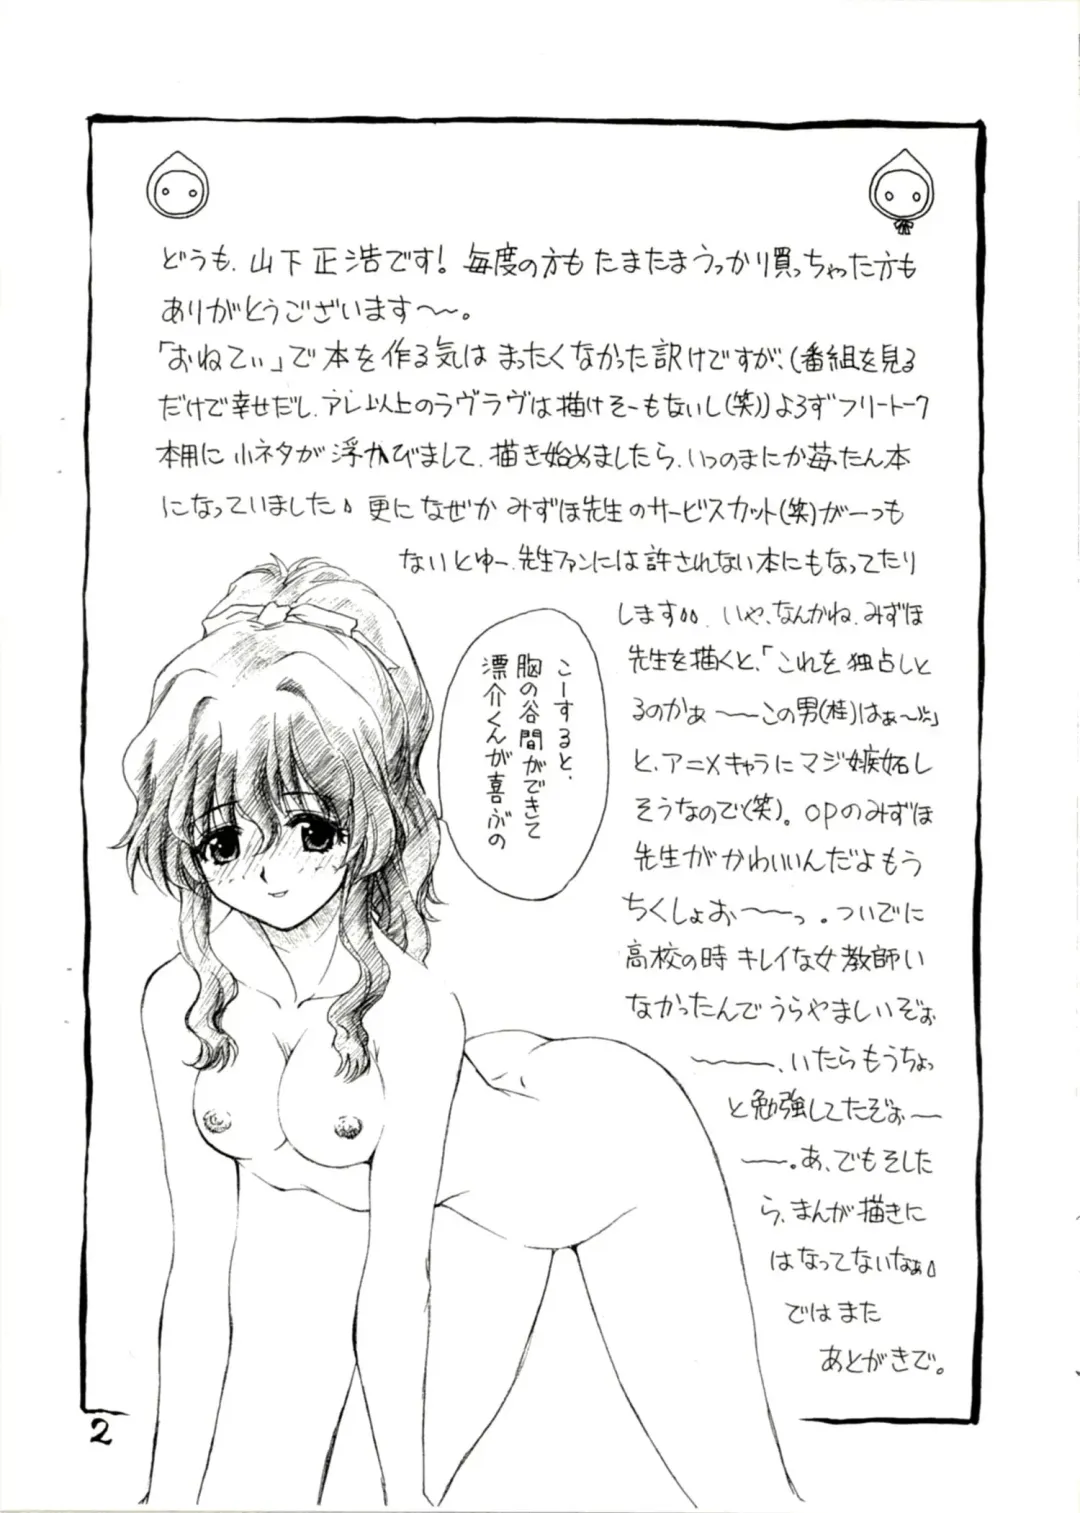 どうも、山下正浩です! 毎度の方も たまたまうっかり買っちゃった方も
ありがとうございます〜〜。
「おねてぃ」で本を作る気は まったくなかった訳ですが、(番組を見る
だけで幸せだし、アレ以上のラヴラヴは描けそーもないし(笑))よろずフリートーク
本用に小ネタが浮かびまして、描き始めましたら、いつのまにか苺たん本
になっていました。更になぜかみずほ先生のサービスカット(笑)が一つも
ないとゆー、先生ファンには許されない本にもなってたり
します。いや、なんかね、みずほ
先生を描くと、「これを独占しと
るのかぁ〜〜この男(桂)はぁ〜」
と、アニメキャラにマジ嫉妬し
そうなので(笑)。OPのみずほ
先生がかわいいんだよもう
ちくしょお〜〜っ。ついでに
高校の時キレイな女教師い
なかったんでうらやましいぞぉ
〜〜〜、いたらもうちょっ
と勉強してたぞぉ〜
〜〜。あ、でもそした
ら、まんが描きに
はなってないなぁ。
ではまた
あとがきで。
こーすると、
胸の谷間ができて
漂介くんが喜ぶの
2